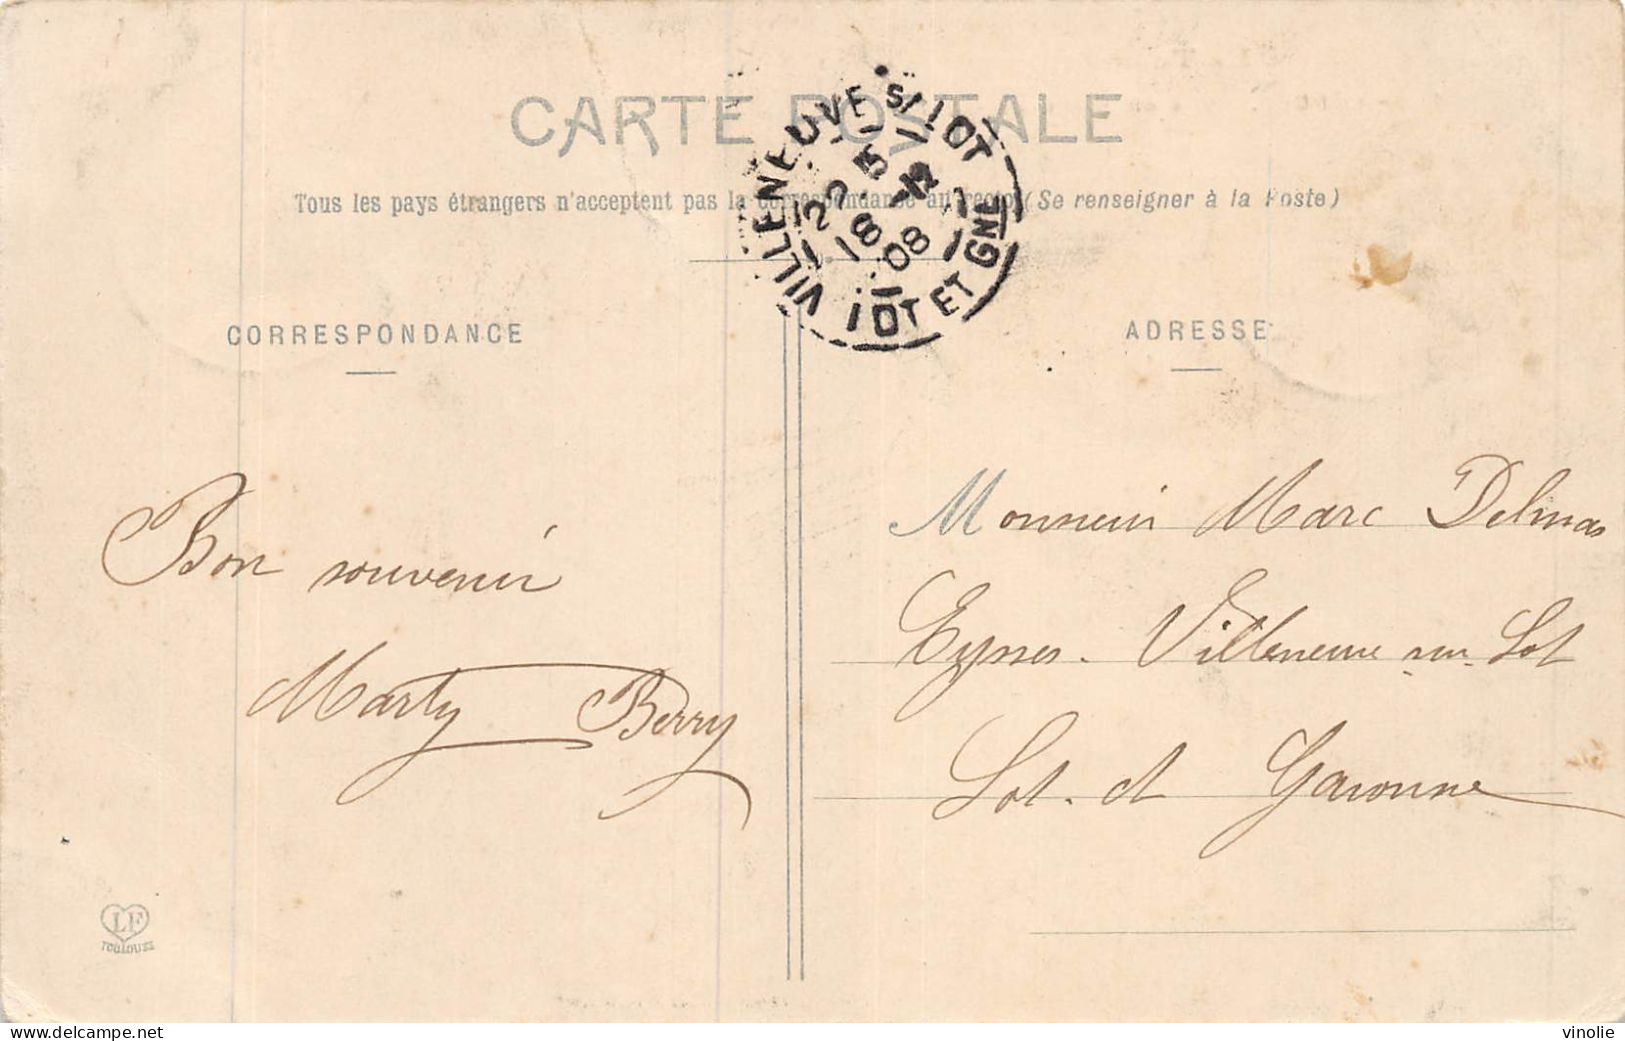 CARTE POSTALE
Tous les pays étrangers n'acceptent pas la correspondance au recto (Se renseigner à la Poste)
VILLENEUVE S/ LOT
LOT ET GNE
22 15
18 -12
08
CORRESPONDANCE
ADRESSE
Bon souvenir
Marty Berry
Monsieur Marc Delmas
Eysses. Villeneuve sur Lot
Lot. et Garonne
LF
TOULOUSE
www.delcampe.net
vinolie